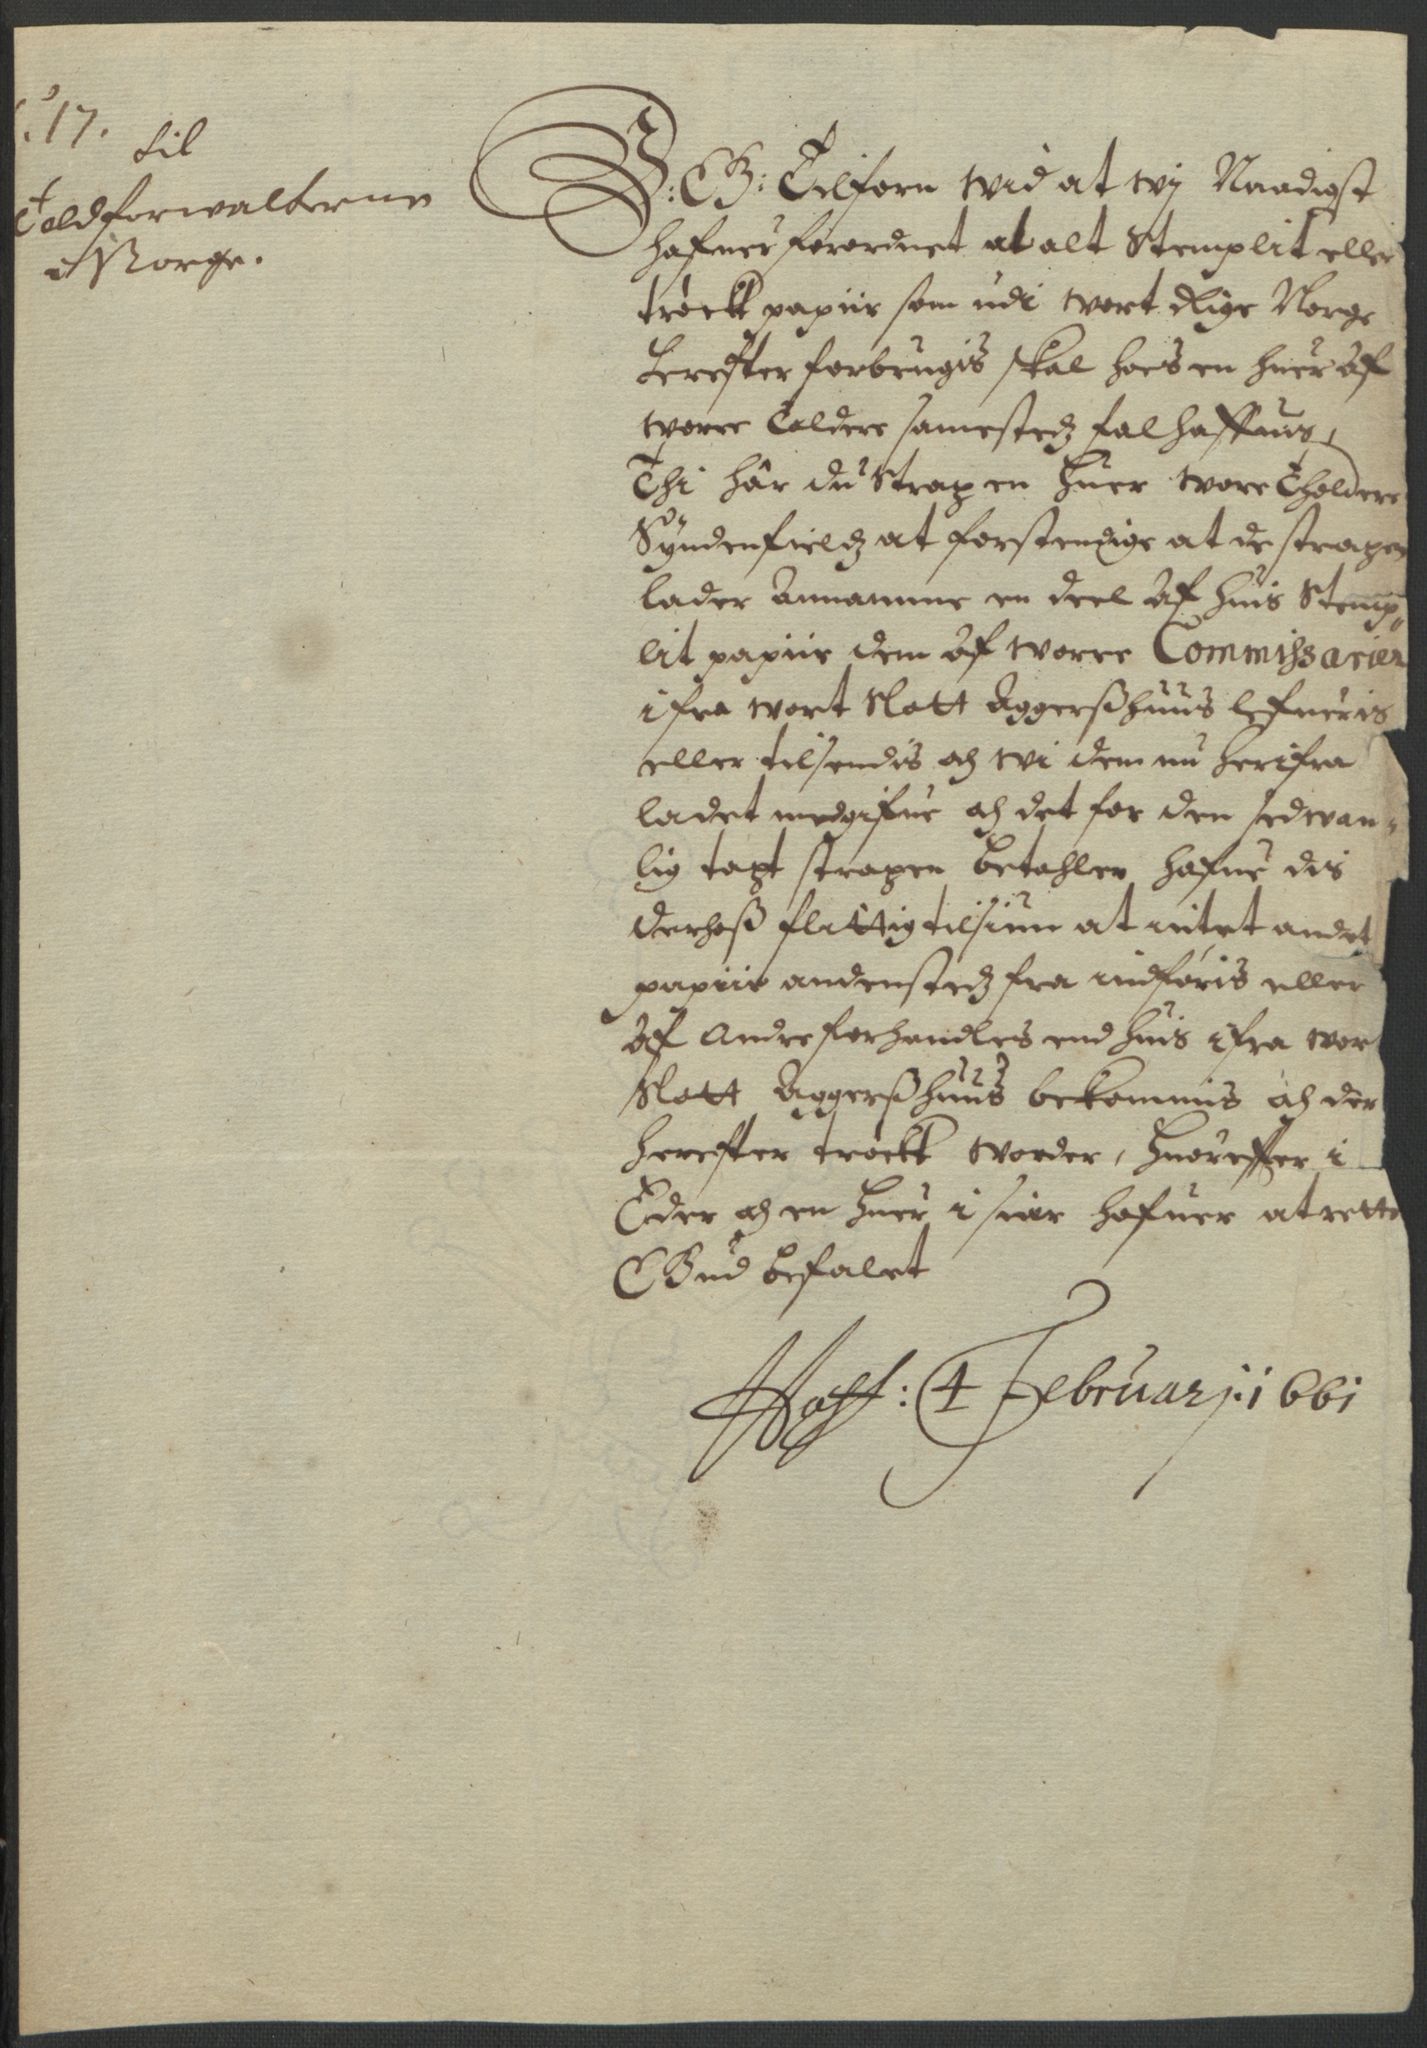 17.
til
Toldforwalterne
i Norge.
F: G: Tilforn wid at wy Naadigst
hafuer forordnet at alt Stemplit eller
tröckt papiir som udi wort Rige Norge
herefter forbrugis skal hoes en huer af
worre Tolderе samestedz fal haffuis,
Thi har du strax en huer wore Tholdere
Syndenfieldz at forstendige at de straxen
lader Annamme en deel af huis Stemp„
lit papiir dem af worre Commissarier
ifra wort Slott Aggerßhuus lefueris
eller tilsendis och wi dem nu herifra
ladet medgifue och det for den sedwan„
lig taxt straxen betahler hafue dis
derhoß flittig tilsiun at intet andet
papiir andenstedz fra indföris eller
af Andre forhandles end huis ifra wor
Slott Aggerßhuus bekommis och der
herefter tröckt worder, huorefter i
Eder och en huer i siær hafuer at rette
Gud befalet
Haff: 4 Februarj: 1661